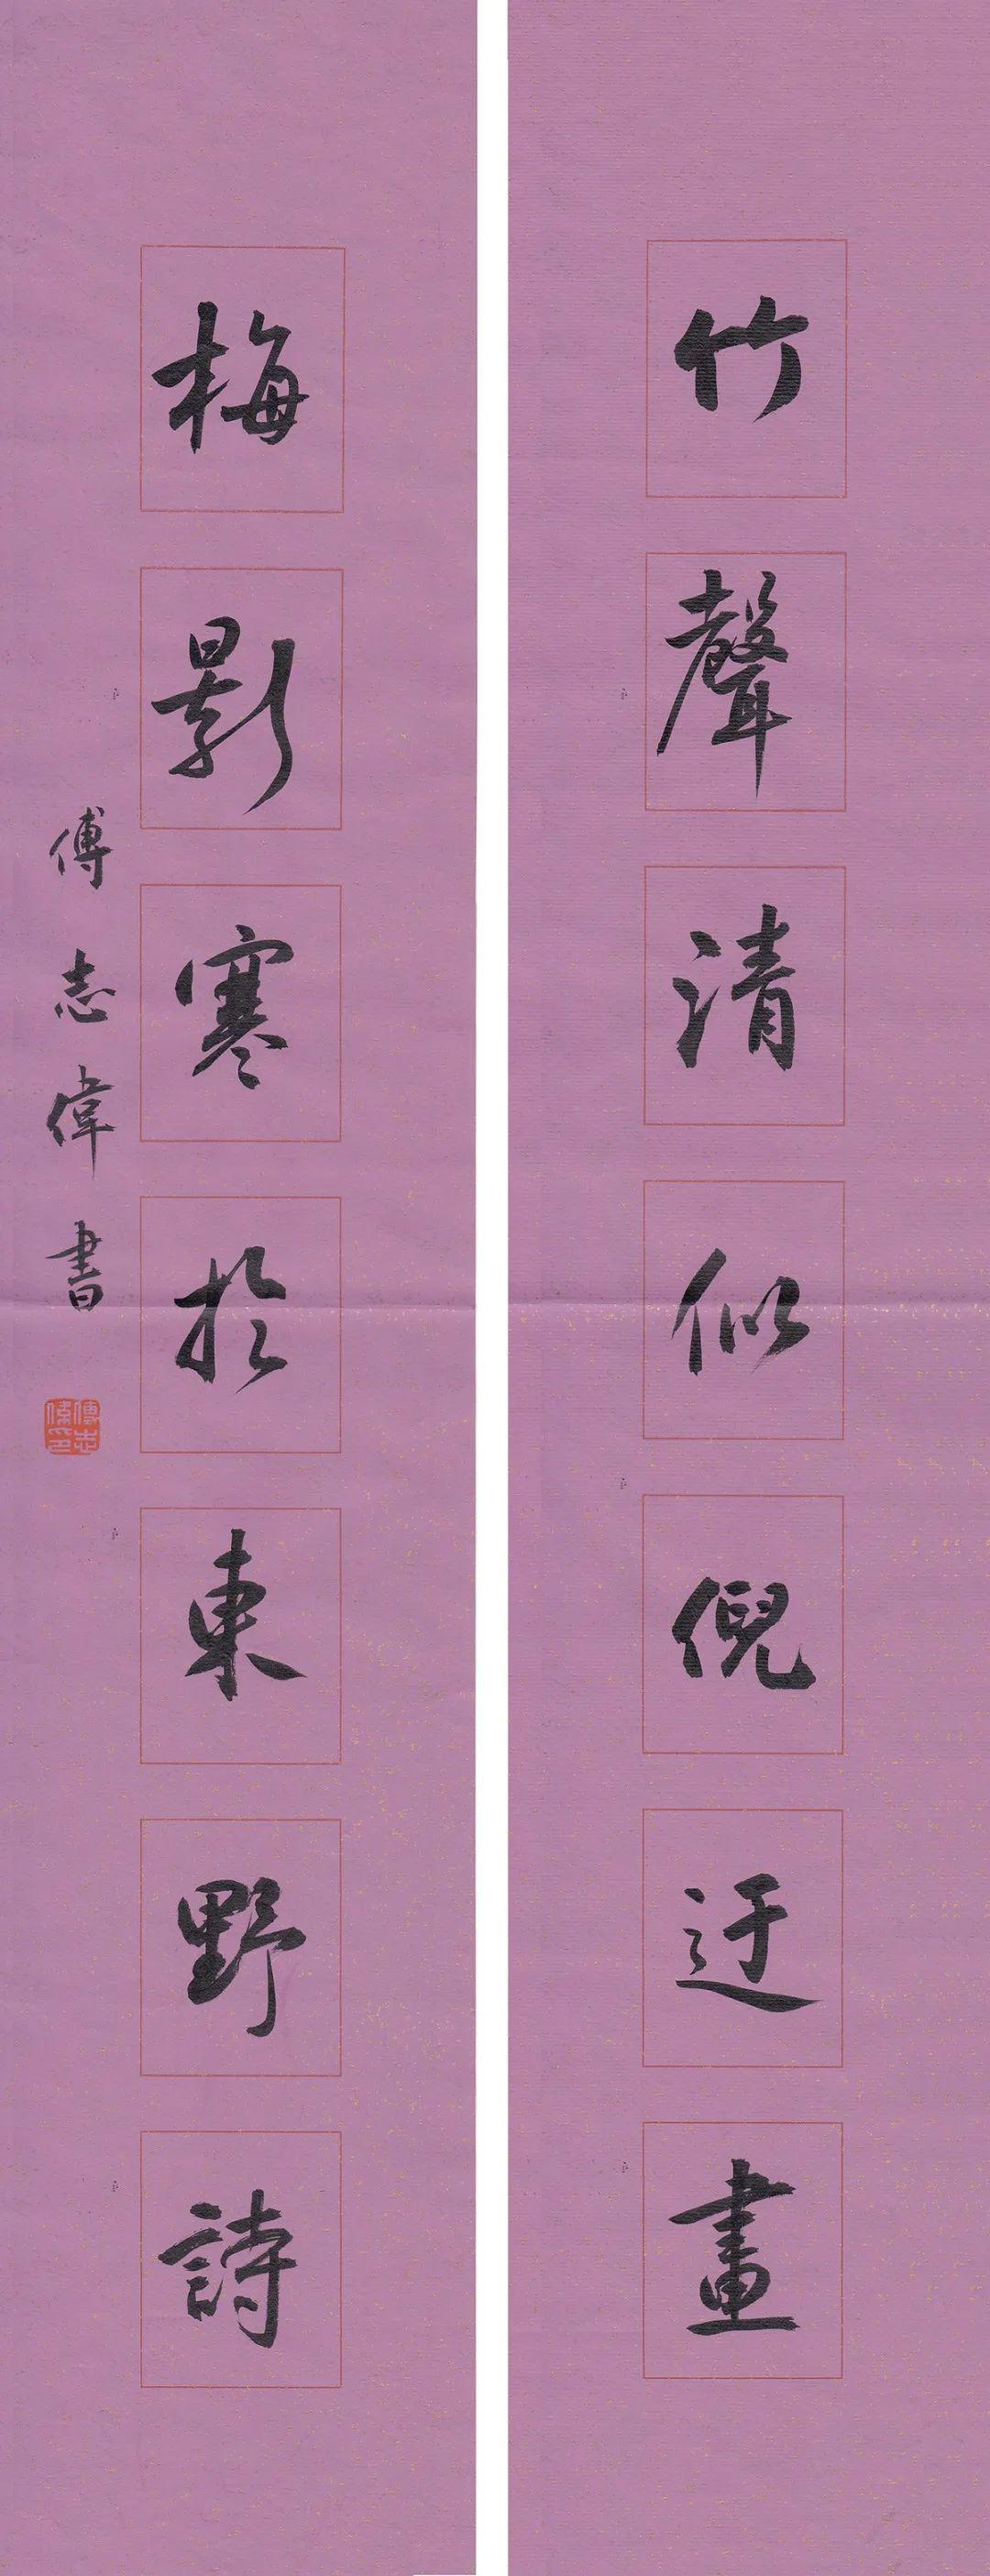 竹聲清似倪迂畫
梅影寒於東野詩
傅志偉書
傅志偉印